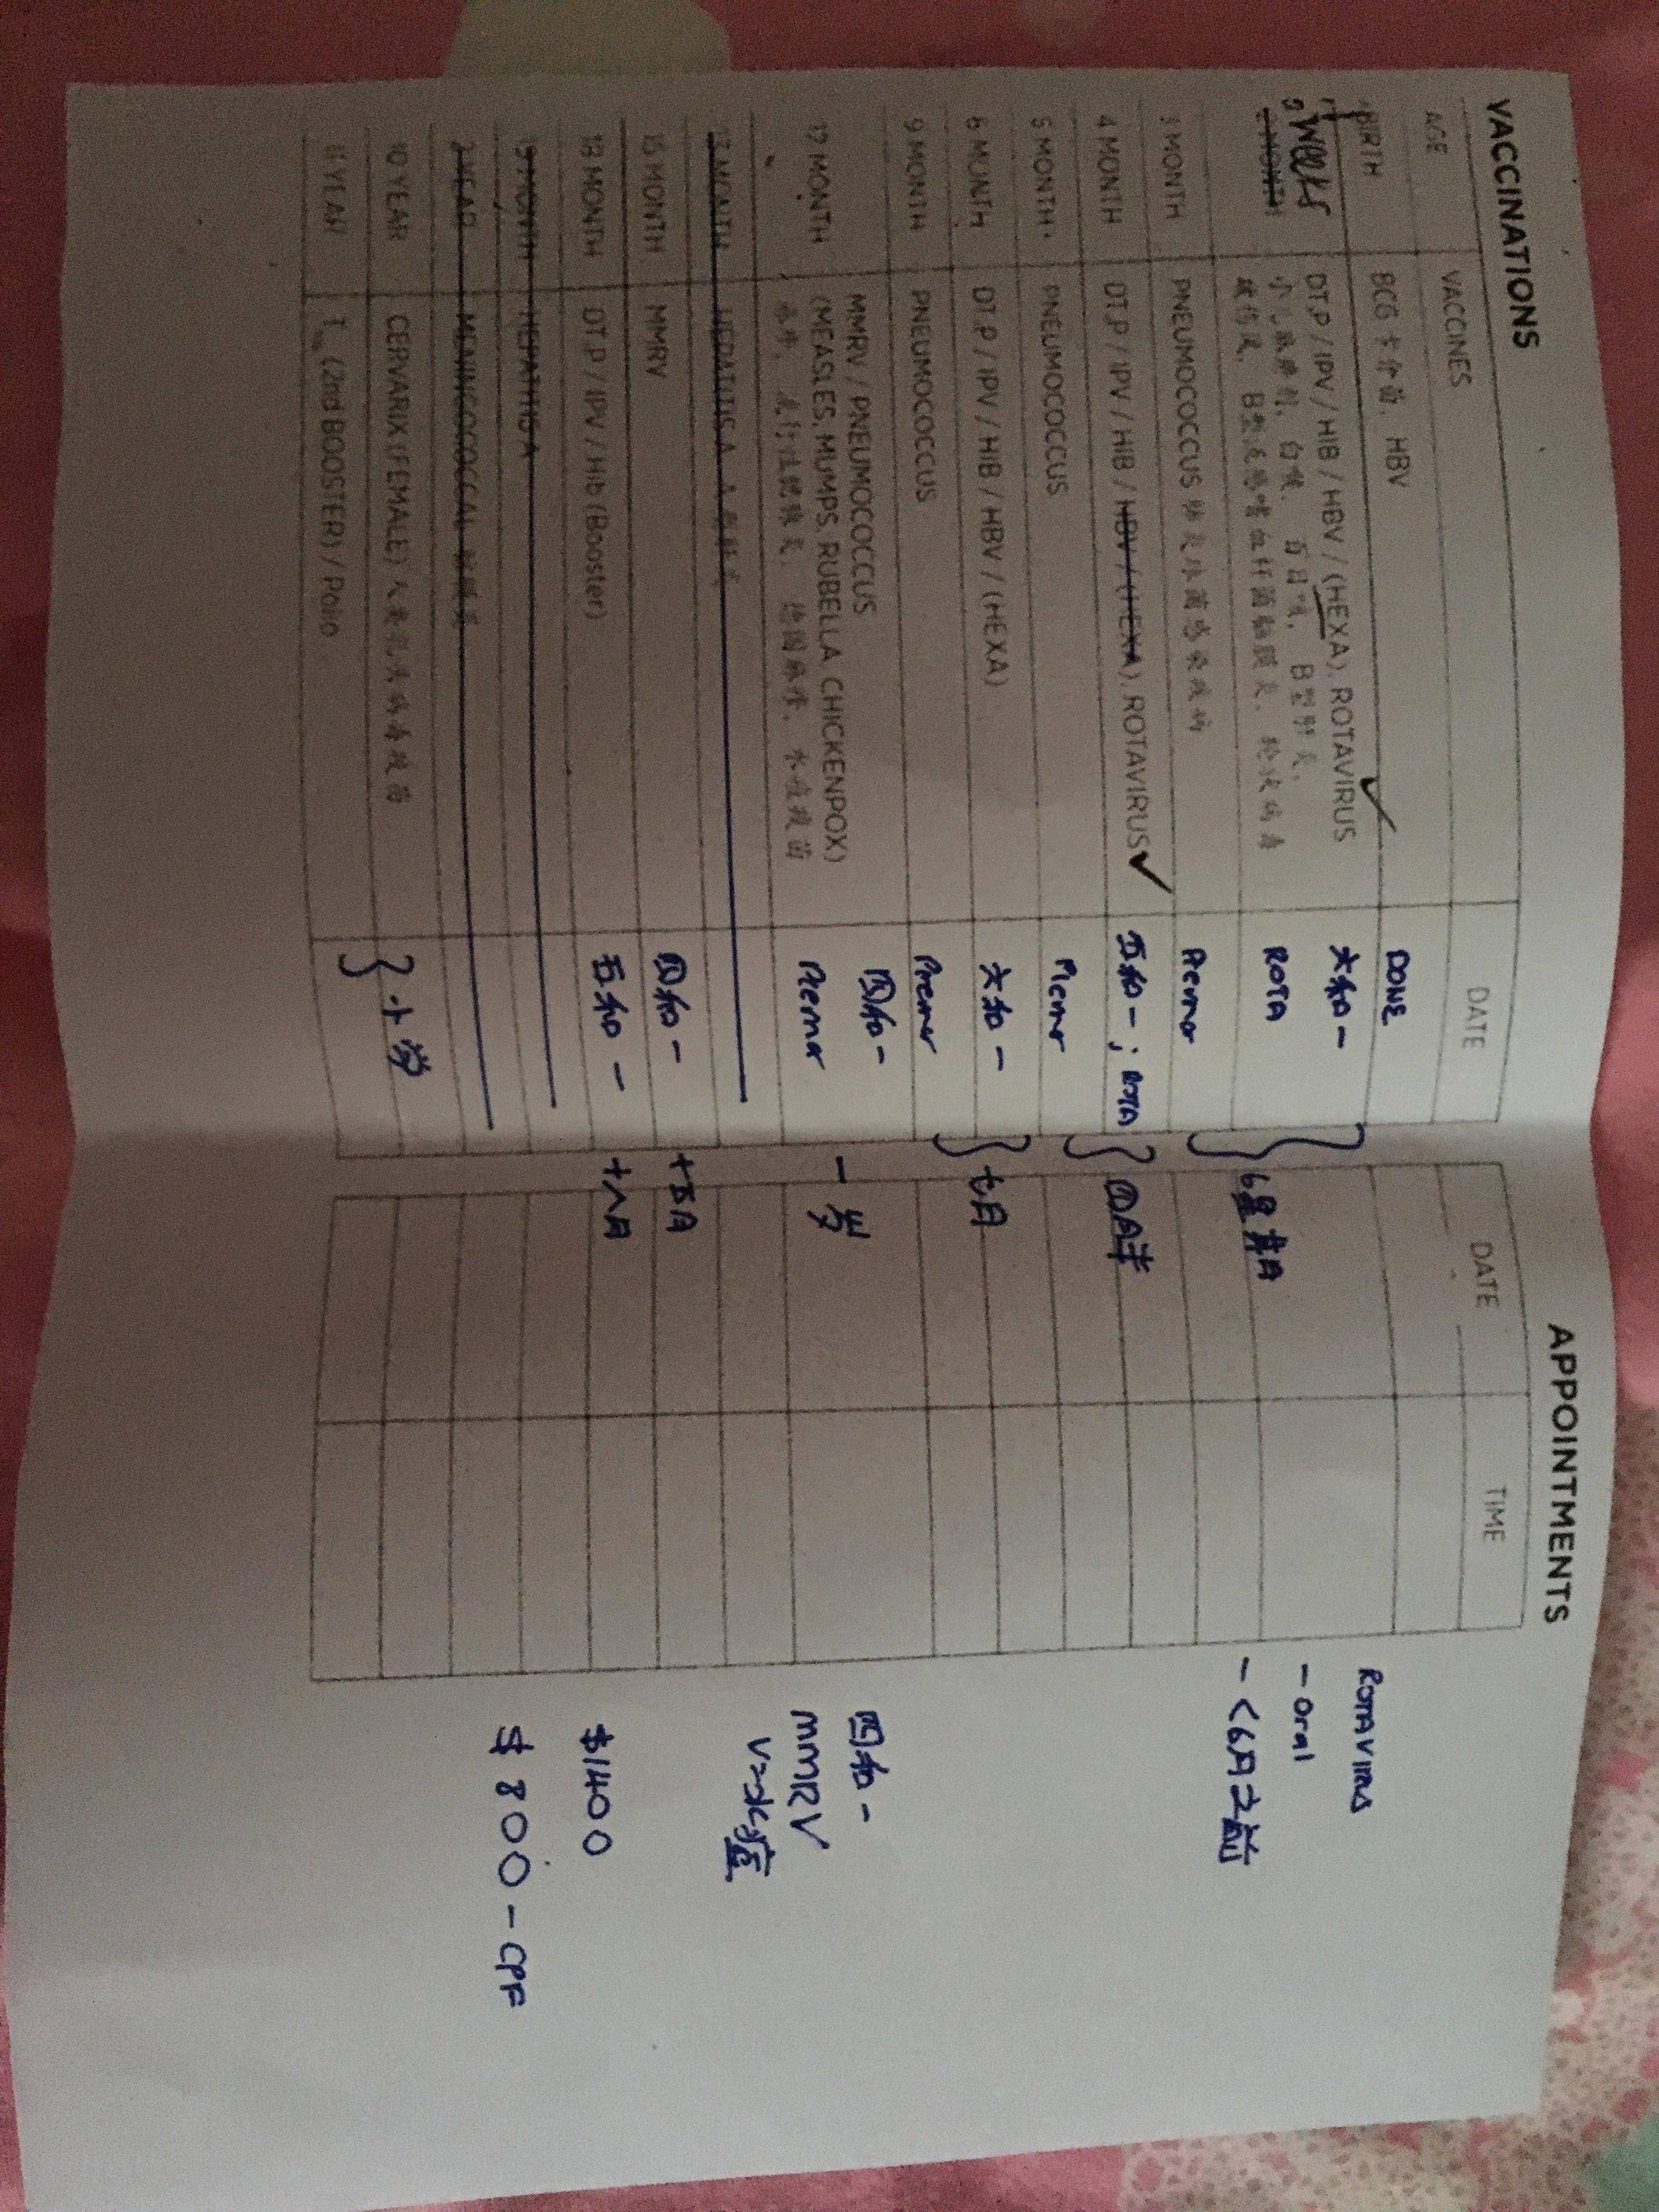 VACCINATIONS
AGE VACCINES DATE
BIRTH BCG 卡介苗, HBV DONE
6 weeks
2 MONTH DT.P / IPV / HIB / HBV / (HEXA), ROTAVIRUS 六和一
小儿麻痹剂, 白喉, 百日咳, B型肝炎,
破伤风, B型流感嗜血杆菌脑膜炎, 轮状病毒 ROTA
3 MONTH PNEUMOCOCCUS 肺炎球菌感染疾病 Pnemo
6星期
4 MONTH DT.P / IPV / HIB / HBV / (HEXA), ROTAVIRUS 五和一; ROTA
5 MONTH PNEUMOCOCCUS Pnemo
四月半
6 MONTH DT.P / IPV / HIB / HBV / (HEXA) 六和一
9 MONTH PNEUMOCOCCUS Pnemo
七月
12 MONTH MMRV / PNEUMOCOCCUS 四和一
(MEASLES, MUMPS, RUBELLA, CHICKENPOX) Pnemo
麻疹, 流行性腮腺炎, 德国麻疹, 水痘疫苗
一岁
MONTH HEPATITIS A A型肝炎
15 MONTH MMRV 四和一 十五月
18 MONTH DT.P / IPV / Hib (Booster) 五和一 十八月
MONTH HEPATITIS A
2 YEAR MENINGOCOCCAL 脑膜炎
10 YEAR CERVARIX (FEMALE) 人类乳头病毒疫苗
11 YEAR (2nd BOOSTER) / Polio
十岁
APPOINTMENTS
DATE TIME
ROTAVIRUS
- oral
- <6月之前
四和一
MMRV
V=水痘
$1400
$800 - CPF